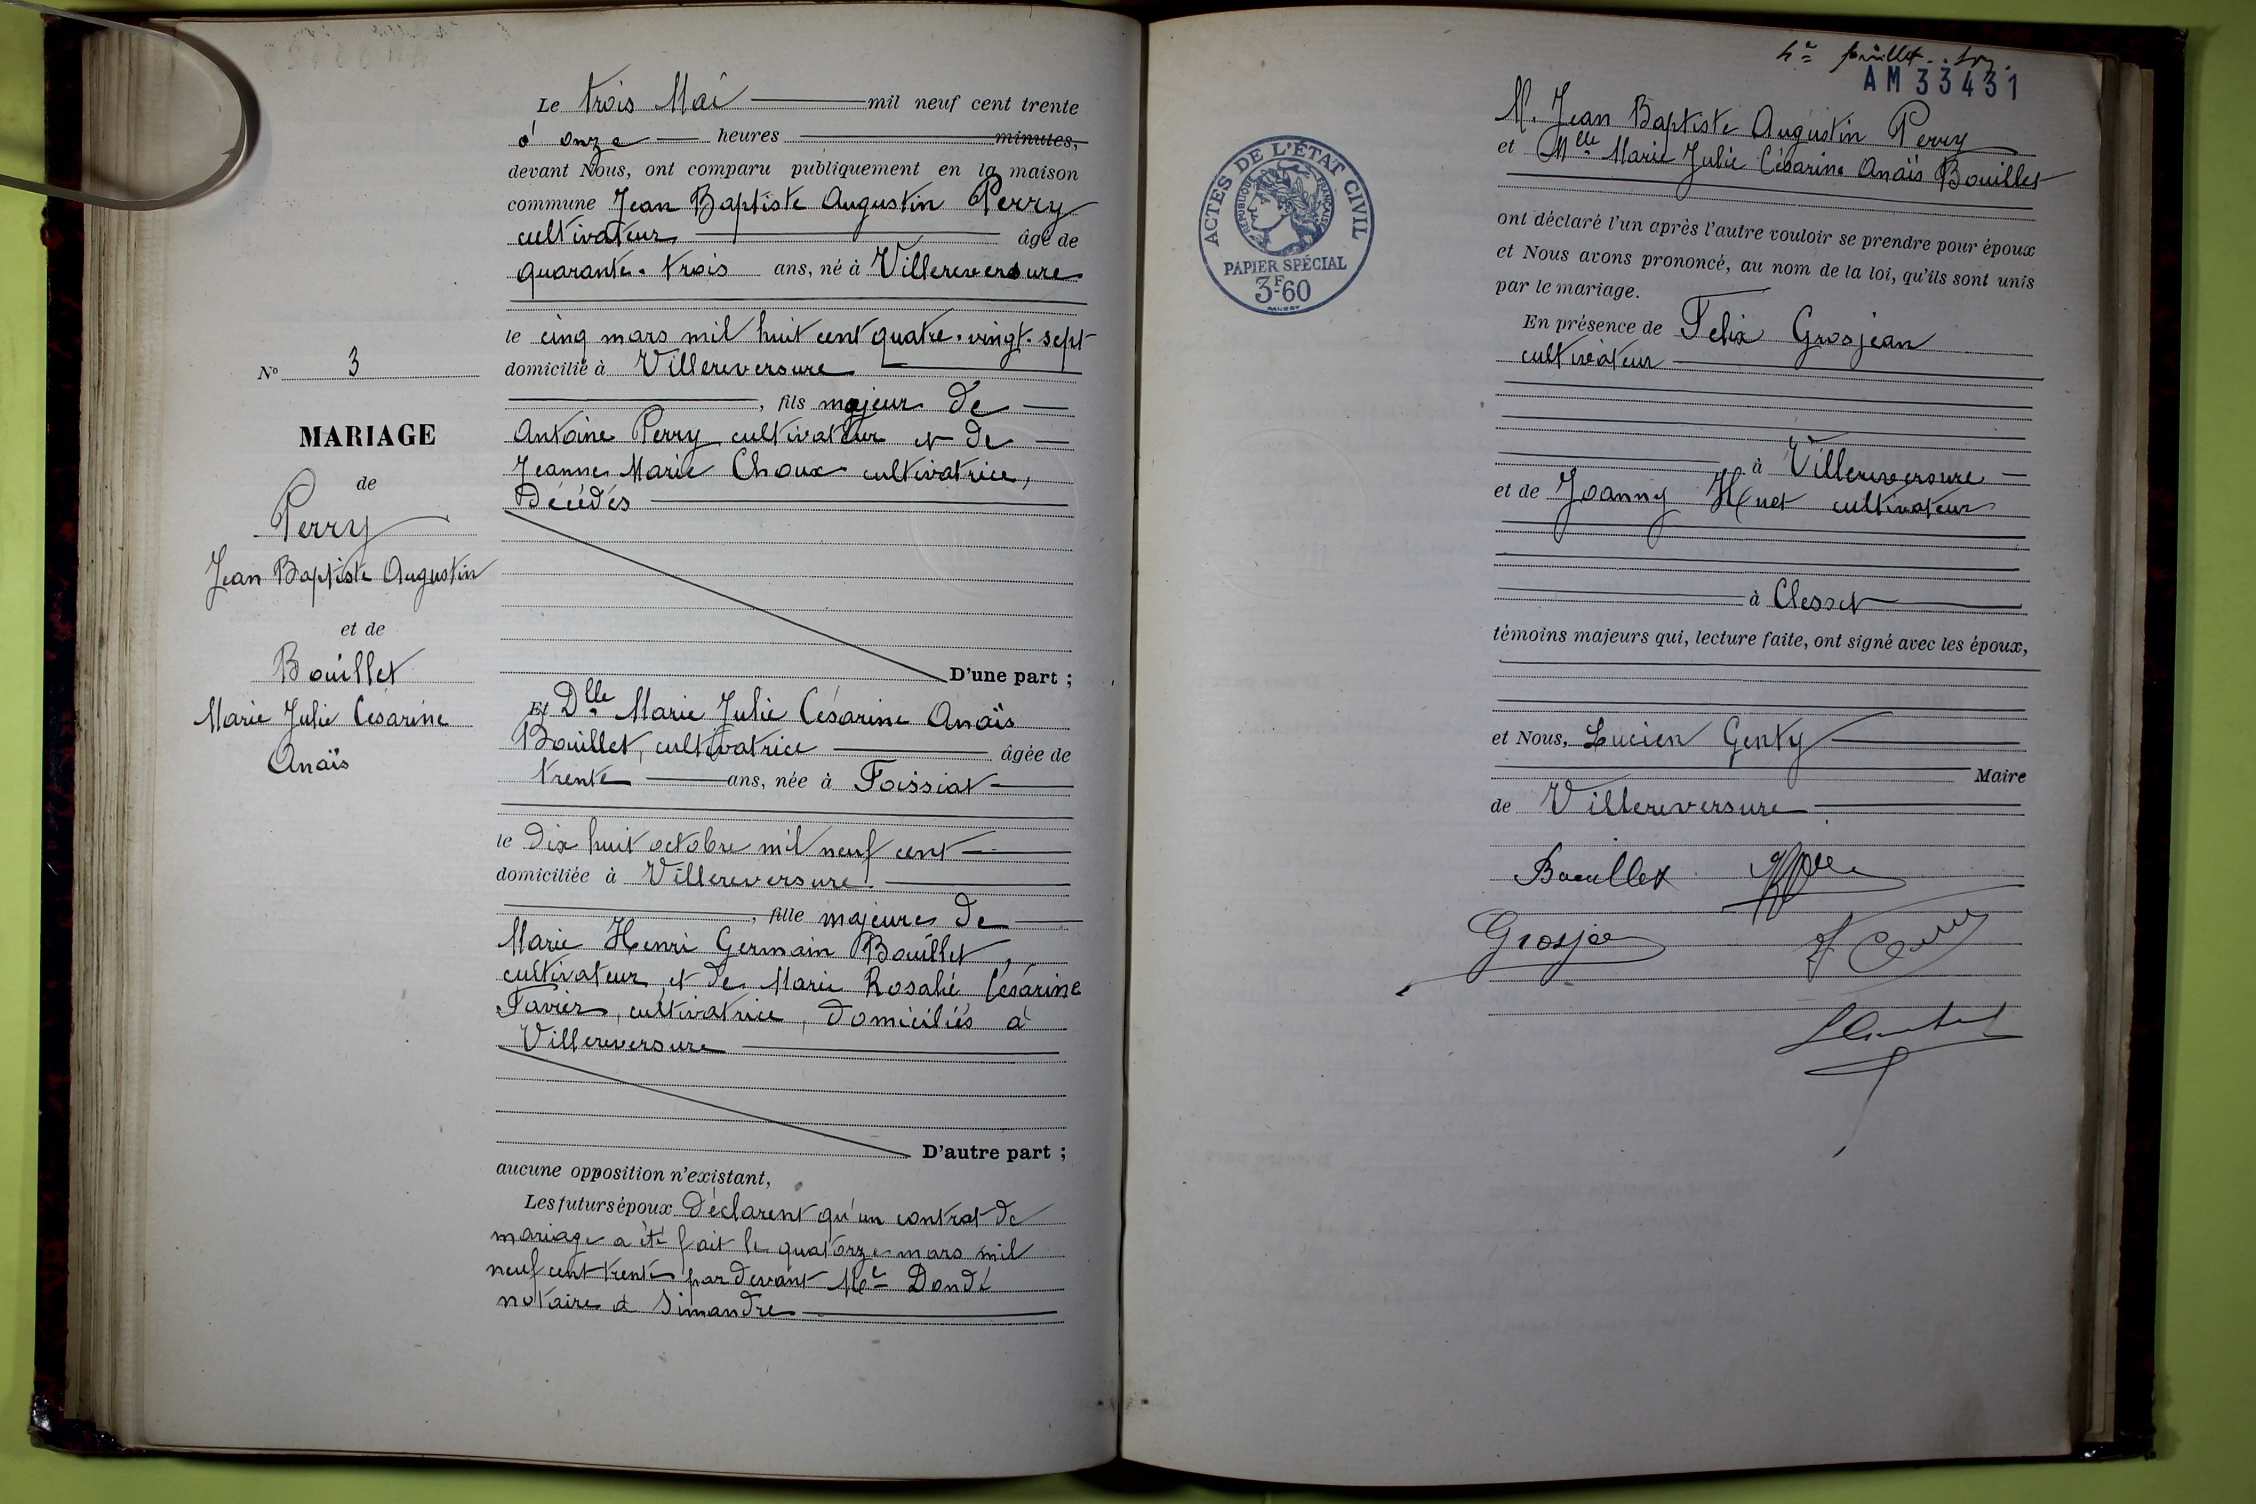 Le trois Mai mil neuf cent trente
à onze heures minutes,
devant Nous, ont comparu publiquement en la maison
commune Jean Baptiste Augustin Perry
cultivateur âgé de
quarante-trois ans, né à Villereversure
le cinq mars mil huit cent quatre-vingt-sept
domicilié à Villereversure
, fils majeur de
Antoine Perry cultivateur et de
Jeanne Marie Choux cultivatrice,
Décédés
D'une part ;
Et Dlle Marie Julie Césarine Anaïs
Bouillet, cultivatrice âgée de
trente ans, née à Foissiat
le dix huit octobre mil neuf cent
domiciliée à Villereversure
, fille majeure de
Marie Henri Germain Bouillet,
cultivateur et de Marie Rosalie Césarine
Favier, cultivatrice, domiciliés à
Villereversure
D'autre part ;
aucune opposition n'existant,
Les futurs époux déclarent qu'un contrat de
mariage a été fait le quatorze mars mil
neuf cent trente par devant Me Dondé
notaire à Simandre
N° 3
MARIAGE
de
Perry
Jean Baptiste Augustin
et de
Bouillet
Marie Julie Cesarine
Anaïs
4e feuillet
AM 33431
ACTES DE L'ÉTAT CIVIL
RÉPUBLIQUE FRANÇAISE
PAPIER SPÉCIAL
3F60
M. Jean Baptiste Augustin Perry
et Mlle Marie Julie Césarine Anaïs Bouillet
ont déclaré l'un après l'autre vouloir se prendre pour époux
et Nous avons prononcé, au nom de la loi, qu'ils sont unis
par le mariage.
En présence de Felix Grosjean
cultivateur
à Villereversure
et de Joanny Huet cultivateur
à Clesset
témoins majeurs qui, lecture faite, ont signé avec les époux,
et Nous, Lucien Genty
Maire
de Villereversure
Bouillet
Grosjean